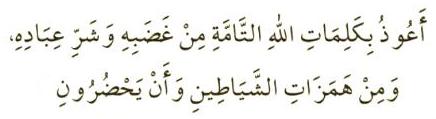 أَعُوذُ بِكَلِمَاتِ اللهِ التَّامَّةِ مِنْ غَضَبِهِ وَشَرِّ عِبَادِهِ،
وَمِنْ هَمَزَاتِ الشَّيَاطِينِ وَأَنْ يَحْضُرُونِ